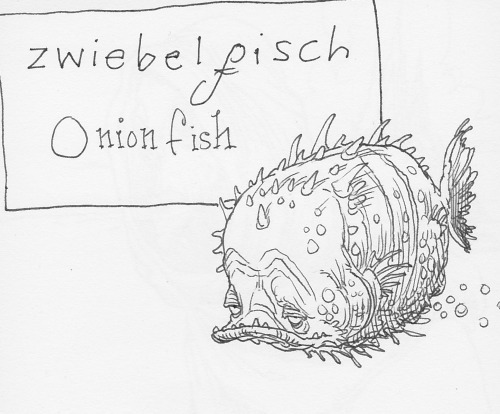 zwiebelfisch
Onion fish